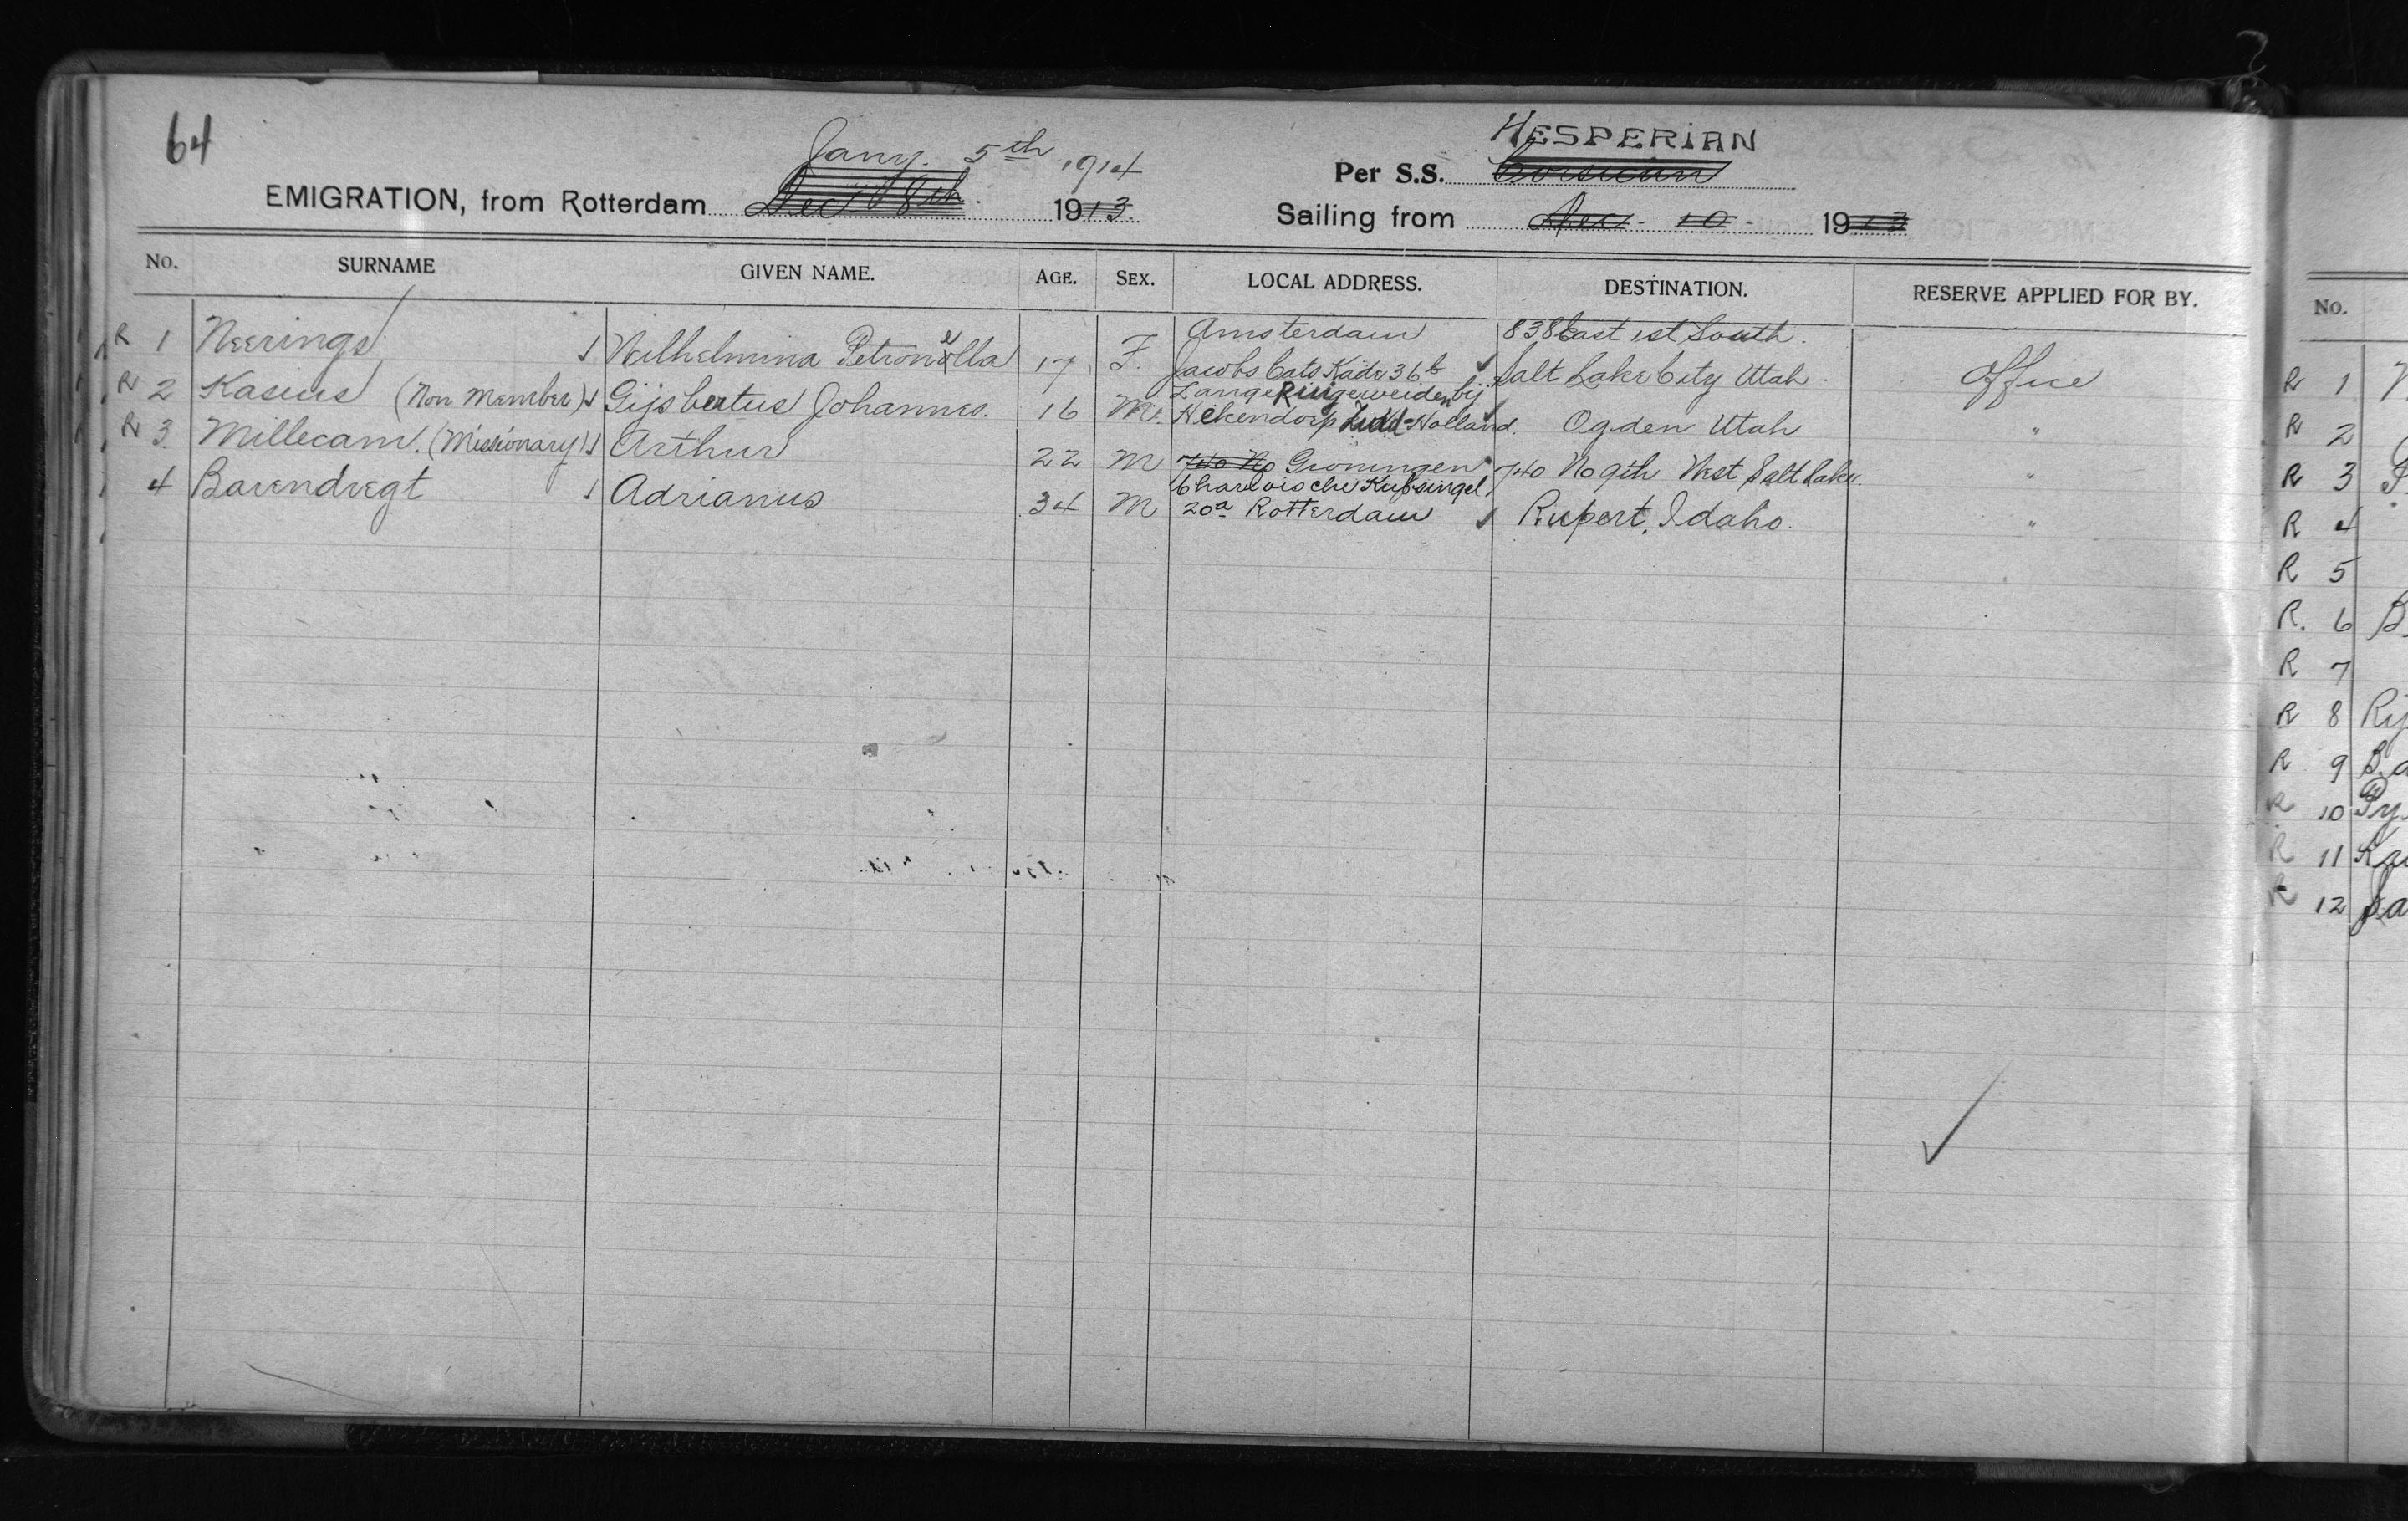 64
Jany. 5th 1914
HESPERIAN
EMIGRATION, from Rotterdam Dec 8th 1913.
Per S.S. Corsican
Sailing from Dec. 10 1913
No. SURNAME GIVEN NAME. AGE. SEX. LOCAL ADDRESS. DESTINATION. RESERVE APPLIED FOR BY.
R 1 Neerings Wilhelmina Petronella 17 F. Amsterdam
Jacobs Cats Kade 36b
838 East 1st South.
Salt Lake City Utah. Office
R 2 Kasius (Non Member) Gijsbertus Johannes. 16 M. Lange Ruigeweiden bij
Hekendorp Zuid-Holland. Ogden Utah "
R 3. Millecam. (Missionary) Arthur 22 M 740 No Groningen 740 No 9th West Salt Lake. "
4 Barendregt Adrianus 34 M Charloische Kufsingel
20a Rotterdam Rupert, Idaho. "
No.
R 1
R 2
R 3
R 4
R 5
R. 6 B
R 7
R 8 Rij
R 9 Ba
R 10 Py
R 11 Kr
R 12